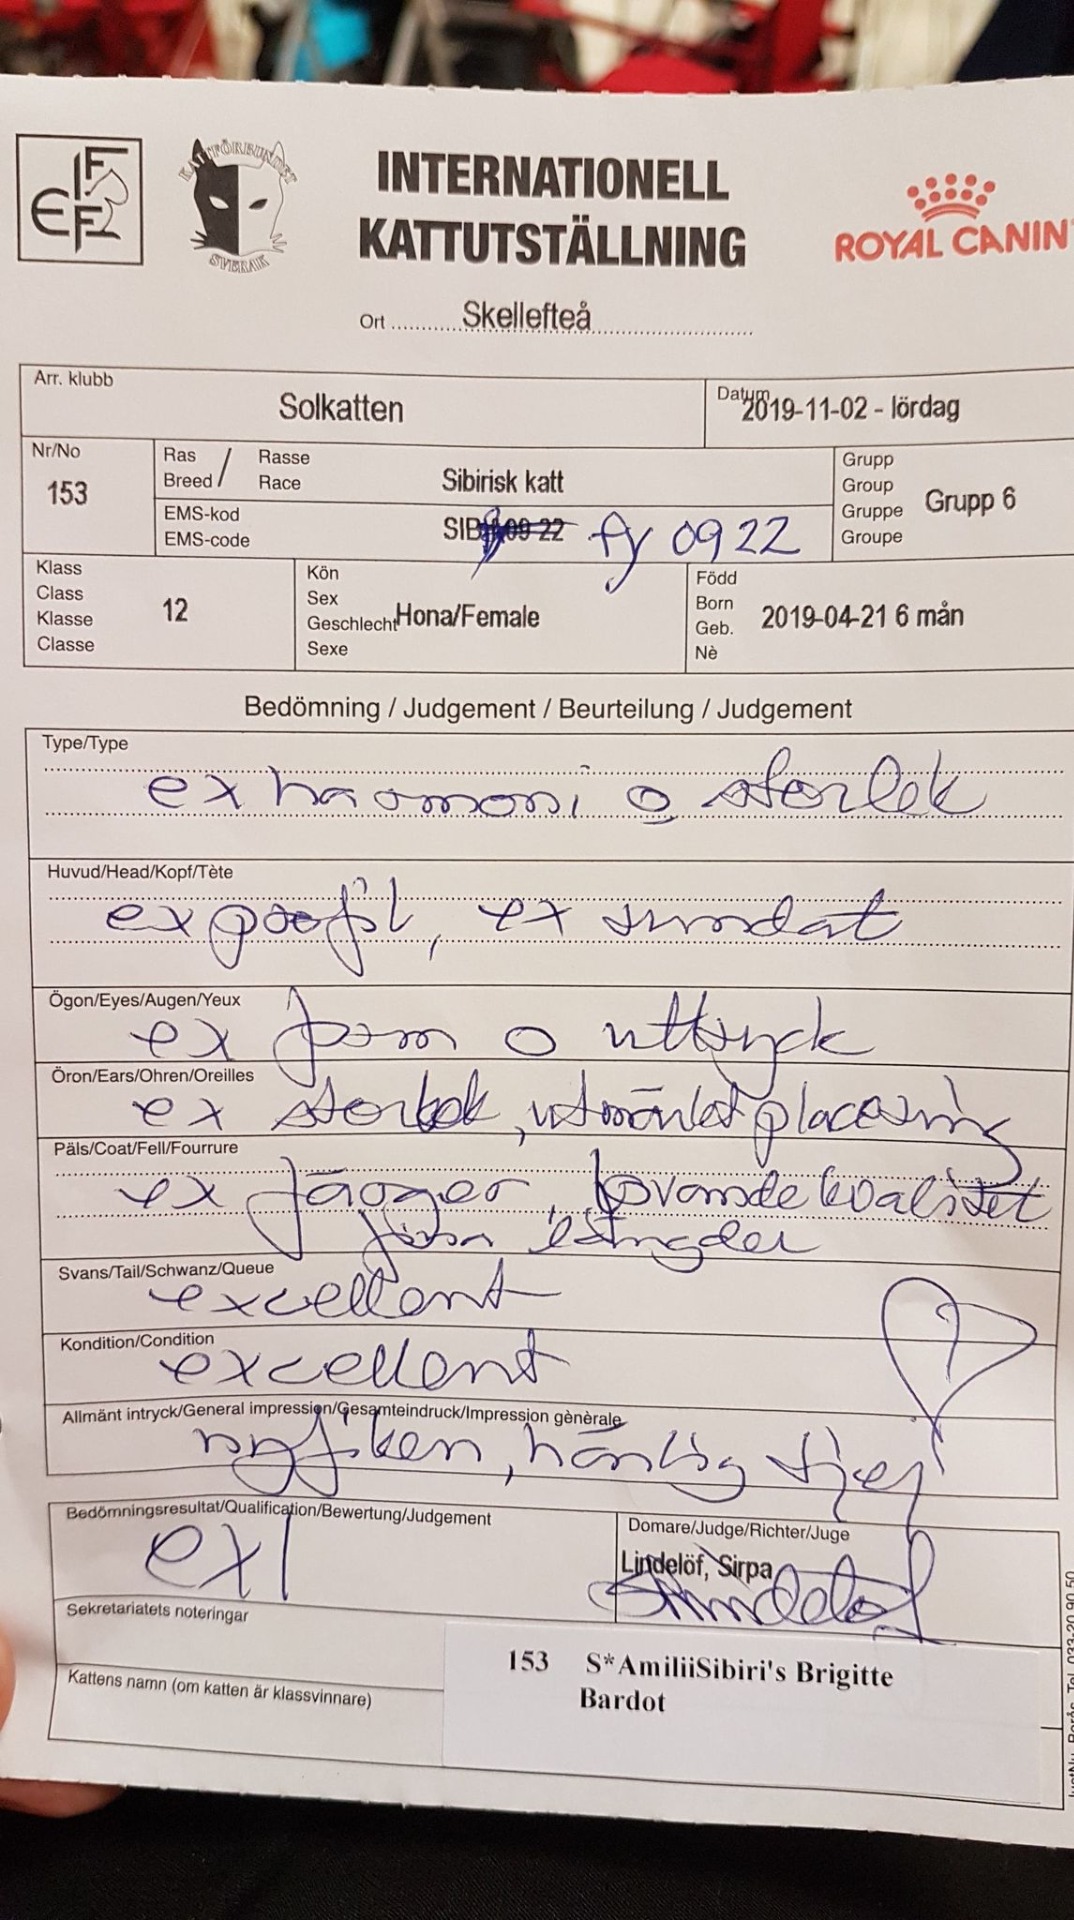 FIFe
KATTFÖRBUNDET
SVERAK
INTERNATIONELL
KATTUTSTÄLLNING
ROYAL CANIN
Ort Skellefteå
Arr. klubb
Solkatten
Datum
2019-11-02 - lördag
Nr/No
153
Ras / Rasse
Breed / Race
Sibirisk katt
EMS-kod
EMS-code
SIB 09 22 fy 09 22
Grupp
Group
Gruppe
Groupe
Grupp 6
Klass
Class
Klasse
Classe
12
Kön
Sex
Geschlecht
Sexe
Hona/Female
Född
Born
Geb.
Nè
2019-04-21 6 mån
Bedömning / Judgement / Beurteilung / Judgement
Type/Type
ex harmoni o storlek
Huvud/Head/Kopf/Tète
ex profil, ex rundat
Ögon/Eyes/Augen/Yeux
ex form o uttryck
Öron/Ears/Ohren/Oreilles
ex storlek, utmärkt placering
Päls/Coat/Fell/Fourrure
ex färger, lovande kvalitet
fina längder
Svans/Tail/Schwanz/Queue
excellent
Kondition/Condition
excellent
Allmänt intryck/General impression/Gesamteindruck/Impression gènèrale
nyfiken, härlig tjej
Bedömningsresultat/Qualification/Bewertung/Judgement
ex 1
Domare/Judge/Richter/Juge
Lindelöf, Sirpa
SLindelöf
Sekretariatets noteringar
Kattens namn (om katten är klassvinnare)
153 S*AmiliiSibiri's Brigitte
Bardot
Borås. Tel. 033-20 90 50